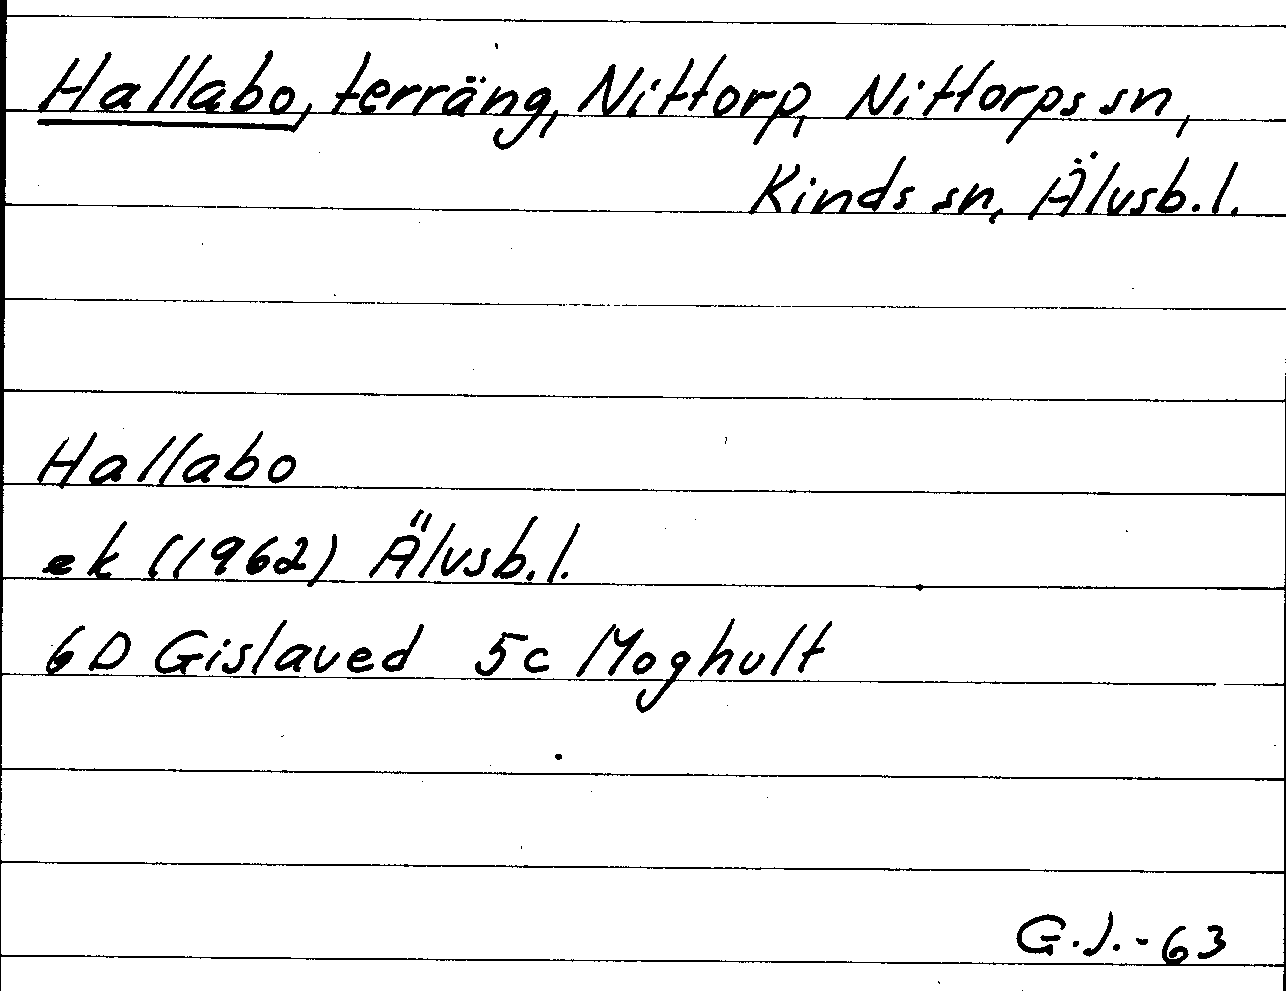 Hallabo, terräng, Nittorp, Nittorps sn,
Kinds sn, Älvsb.l.
Hallabo
ek (1962) Älvsb.l.
6D Gislaved 5c Moghult
G.J.-63